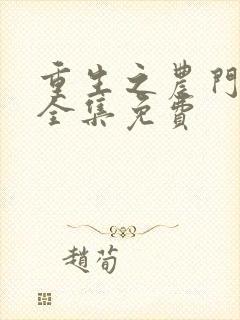 重生之農門
全集免費
趙荀